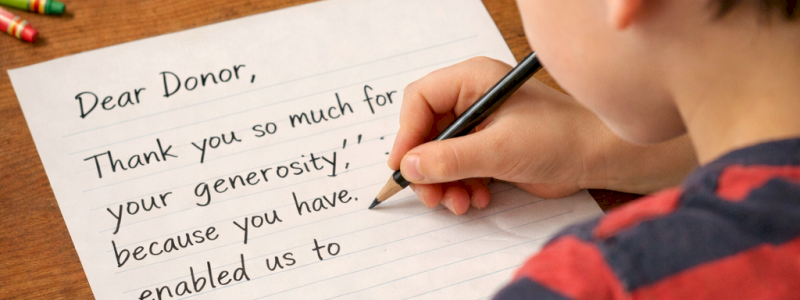 Dear Donor,
Thank you so much for
your generosity,'' :
because you have.
enabled us to